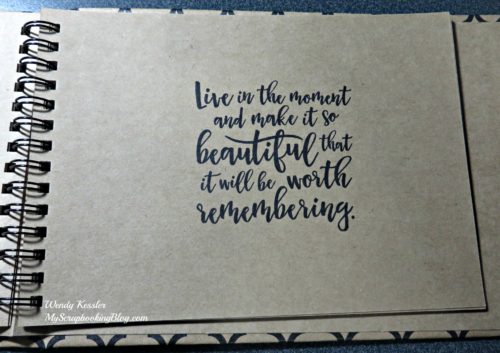 Live in the moment
and make it so
beautiful that
it will be worth
remembering.
Wendy Kessler
MyScrapbookingBlog.com